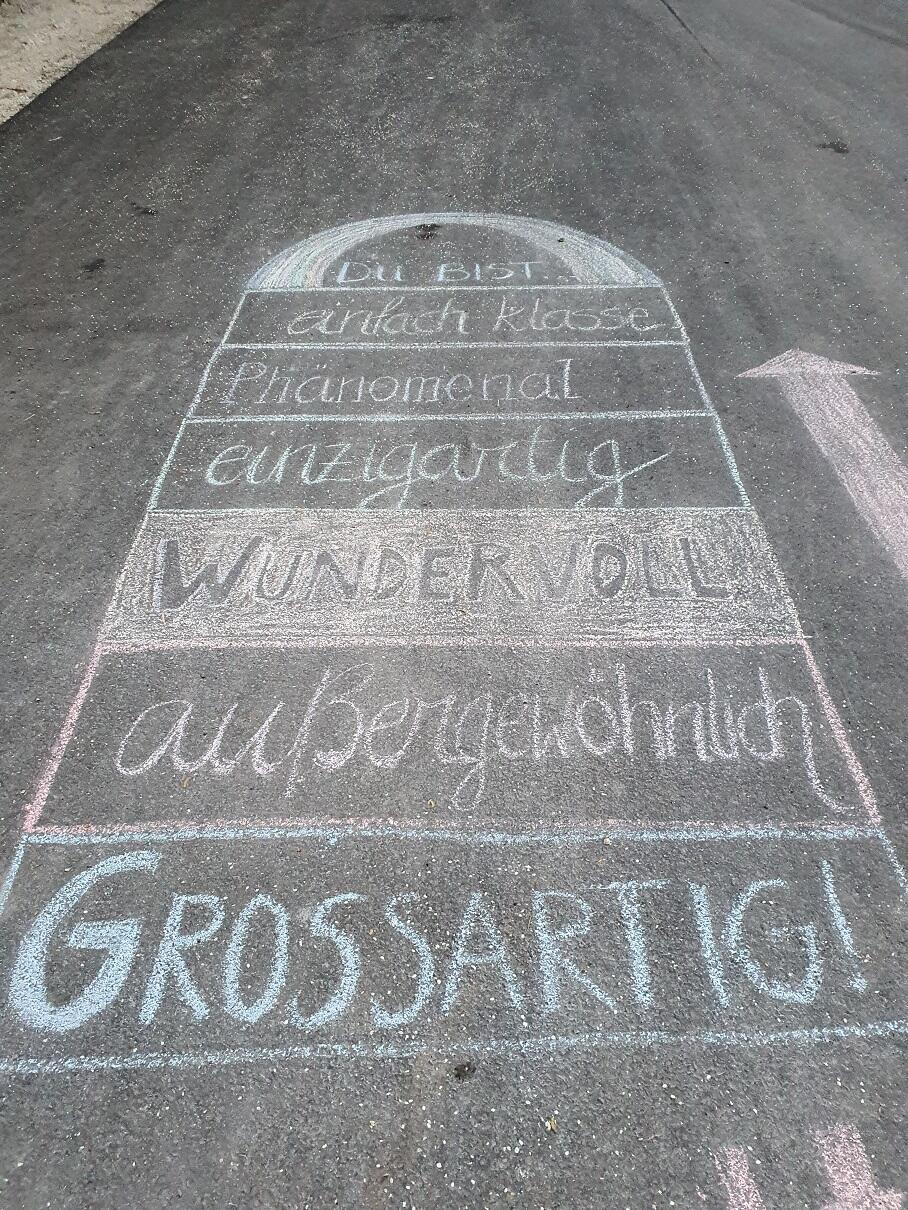 Du BIST...
einfach klasse
Phänomenal
einzigartig
WUNDERVOLL
außergewöhnlich
GROSSARTIG!